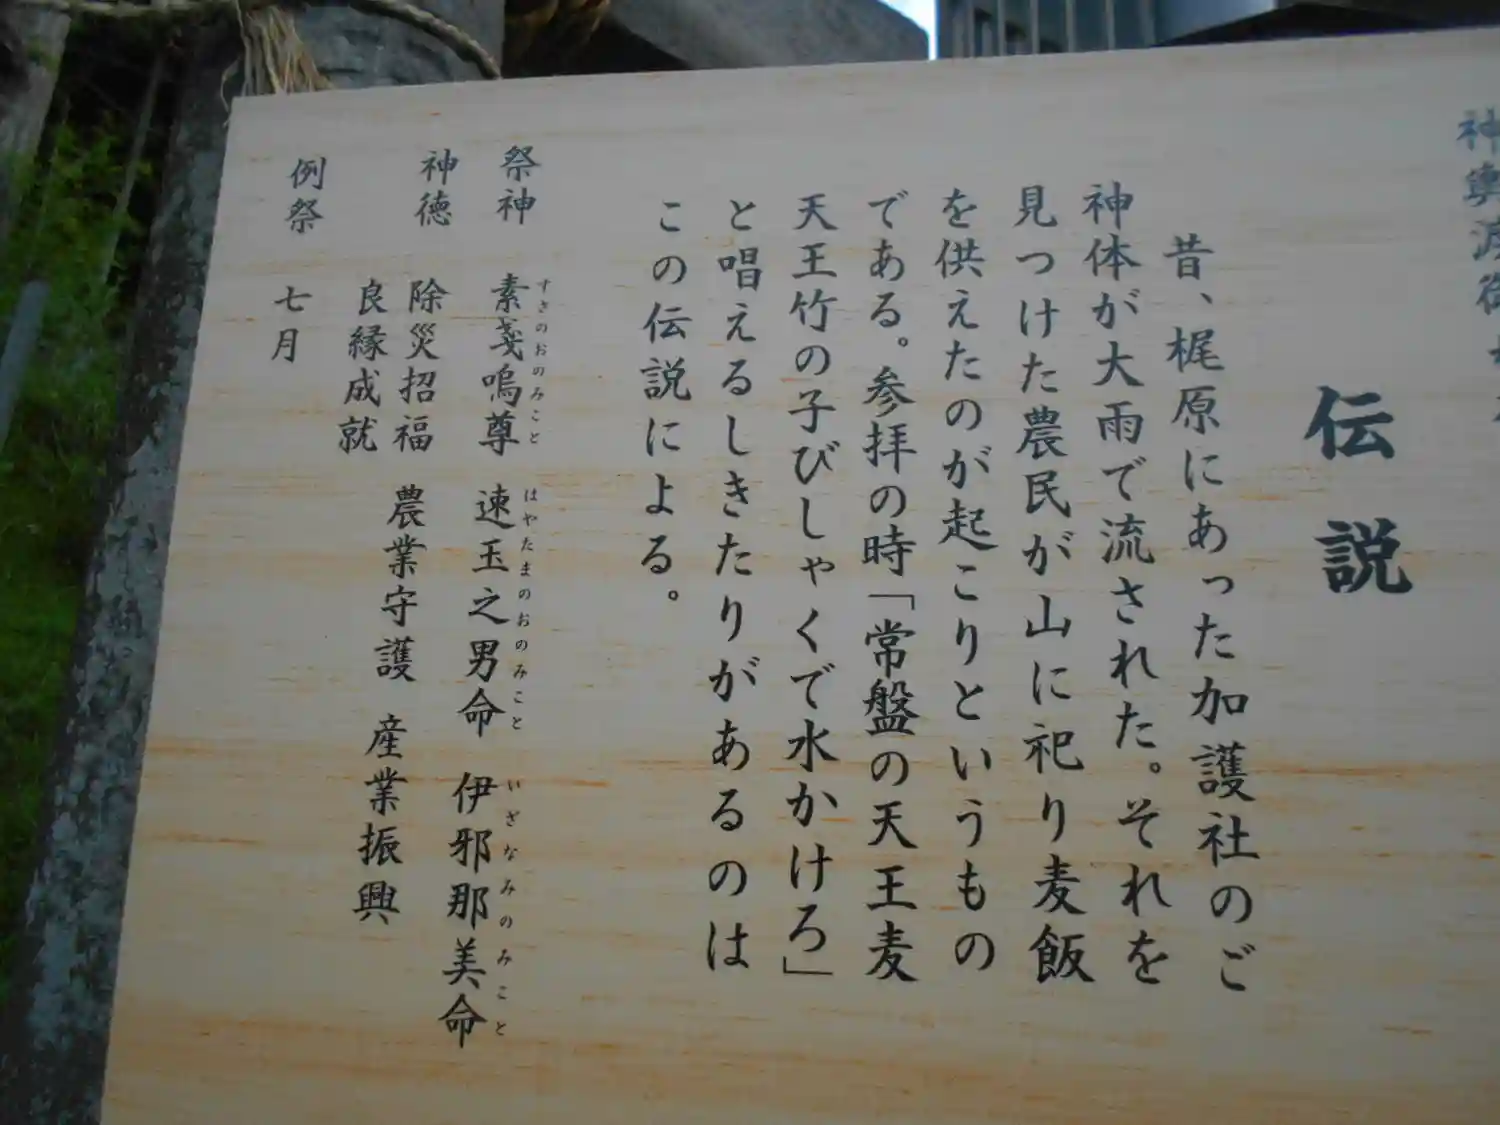 神輿渡御
伝説
昔、梶原にあった加護社のご
神体が大雨で流された。それを
見つけた農民が山に祀り麦飯
を供えたのが起こりというもの
である。参拝の時「常盤の天王麦
天王竹の子びしゃくで水かけろ」
と唱えるしきたりがあるのは
この伝説による。
祭神 素戔嗚尊 速玉之男命 伊邪那美命
すさのおのみこと はやたまのおのみこと いざなみのみこと
神徳 除災招福 農業守護 産業振興
良縁成就
例祭 七月